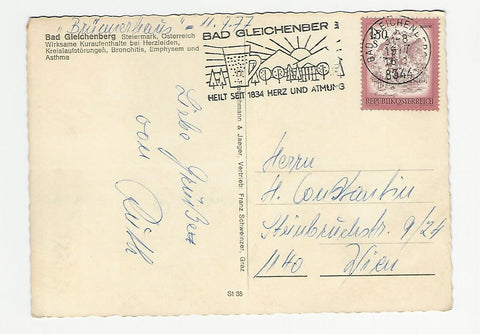 "Brünnerhaus" - 11.4.77
Bad Gleichenberg Steiermark, Österreich
Wirksame Kuraufenthalte bei Herzleiden,
Kreislaufstörungen, Bronchitis, Emphysem und
Asthma
BAD GLEICHENBERG
HEILT SEIT 1834 HERZ UND ATMUNG
BAD GLEICHENBERG
8344
1.50
REPUBLIK ÖSTERREICH
Liebe Grüße
von
Ruth
& Jaeger. Vertrieb: Franz Schweinzer, Graz
St 38
Herrn
H. Constantin
Steinbruchstr. 9/24
1140 Wien